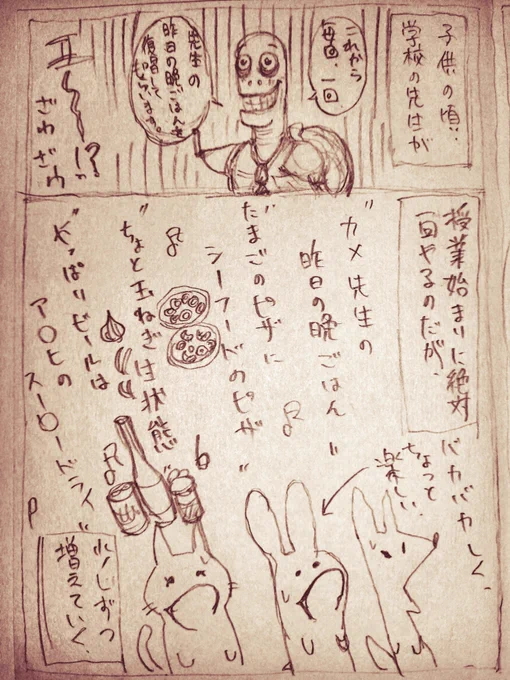 子供の頃、
学校の先生が
これから
毎回一回、
先生の
昨日の晩ごはんを
復習して
もらいます。
エ〜〜!?
ざわ
ざわ
授業始まりに絶対
一回やるのだが、
バカバカしく、
ちょっと
楽しい。
"カメ先生の
昨日の晩ごはん"
"たまごのピザに
シーフードのピザ"
"ちょと玉ねぎは状態"
"やっぱりビールは
ア〇ヒの
スー〇ードライ"
少しずつ
増えていく。